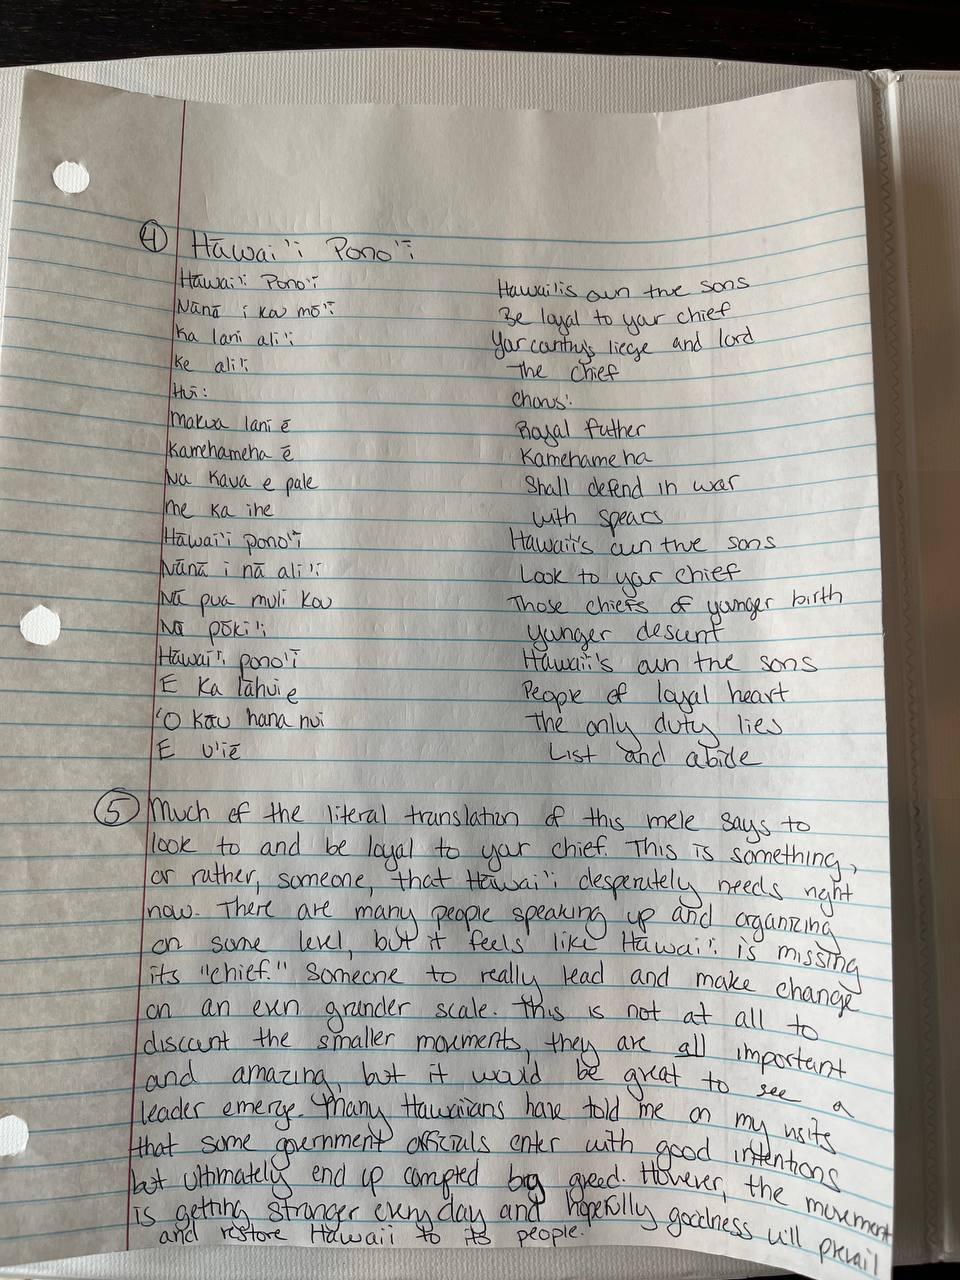 ④ Hāwai'i Pono'ī
Hāwai'i Pono'ī Hawaii's own true sons
Nānā i kou mō'ī Be loyal to your chief
Ka lani ali'i Your country's liege and lord
Ke ali'i The chief
Hui: Chorus:
Makua lani ē Royal father
Kamehameha ē Kamehameha
Na Kaua e pale Shall defend in war
Me ka ihe with spears
Hāwai'i pono'ī Hawaii's own true sons
Nānā i nā ali'i Look to your chief
Nā pua muli kou Those chiefs of younger birth
Nā pōki'i younger descent
Hāwai'i pono'ī Hawaii's own the sons
E Ka lāhui e People of loyal heart
'O Kāu hana nui The only duty lies
E u'iē List and abide
⑤ Much of the literal translation of this mele says to
look to and be loyal to your chief. This is something,
or rather, someone, that Hāwai'i desperately needs right
now. There are many people speaking up and organizing
on some level, but it feels like Hāwai'i is missing
its "chief." Someone to really lead and make change
on an even grander scale. This is not at all to
discount the smaller movments, they are all important
and amazing, but it would be great to see a
leader emerge. Many Hawaiians have told me on my visits
that some government officials enter with good intentions
but ultimately end up corrupted by greed. However, the movement
is getting stronger every day and hopefully goodness will prevail
and restore Hāwaii to its people.